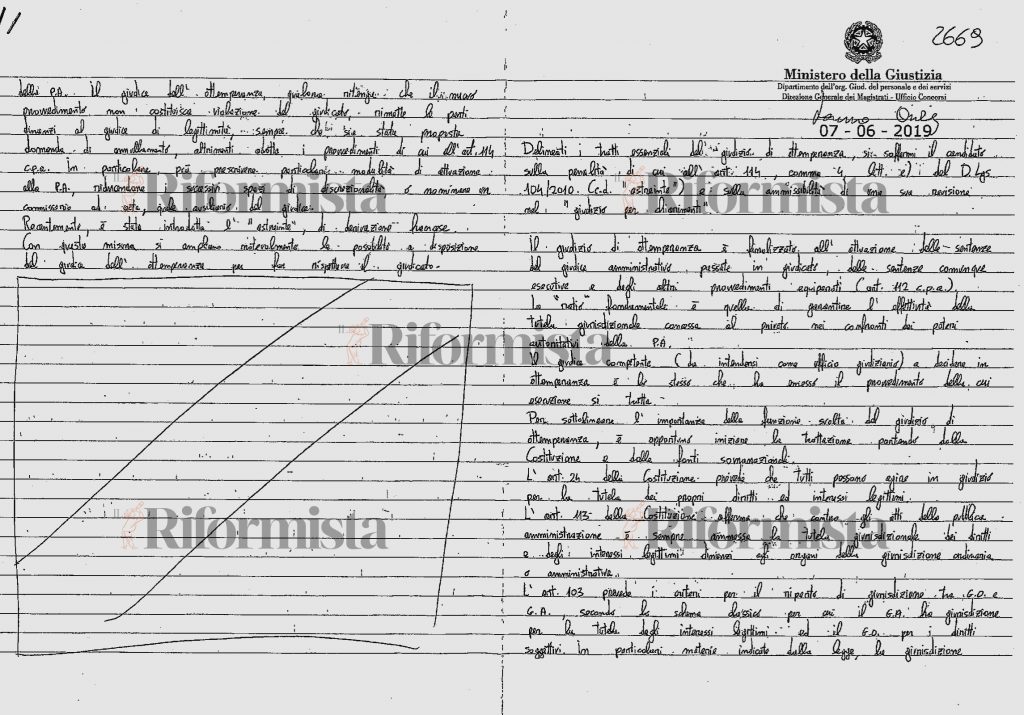 della P.A. Il giudice dell'ottemperanza, qualora ritenga che il nuovo
provvedimento non costituisca violazione del giudicato, rimette le parti
dinanzi al giudice di legittimità, sempre che sia stata proposta
domanda di annullamento, altrimenti adotta i provvedimenti di cui all'art. 114
c.p.a. In particolare può prescrivere particolari modalità di attuazione
alla P.A., riducendone i successivi spazi di discrezionalità o nominare un
commissario ad acta, quale ausiliario del giudice.
Recentemente, è stata introdotta l'"astreinte", di derivazione francese.
Con questa misura si ampliano notevolmente le possibilità a disposizione
del giudice dell'ottemperanza per far rispettare il giudicato.
2669
Ministero della Giustizia
Dipartimento dell'org. Giud. del personale e dei servizi
Direzione Generale dei Magistrati - Ufficio Concorsi
07 - 06 - 2019
Delineati i tratti essenziali del giudizio di ottemperanza, si soffermi il candidato
sulla penalità di cui all'art. 114, comma 4 lett. e) del D.Lgs.
104/2010 (c.d. "astreinte") e sulla ammissibilità di una sua revisione
nel "giudizio per chiarimenti"
Il giudizio di ottemperanza è finalizzato all'attuazione delle sentenze
del giudice amministrativo passate in giudicato, delle sentenze comunque
esecutive e degli altri provvedimenti equiparati (art. 112 c.p.a.).
La "ratio" fondamentale è quella di garantire l'effettività della
tutela giurisdizionale concessa al privato nei confronti dei poteri
autoritativi della P.A.
Il giudice competente (da intendersi come ufficio giudiziario) a decidere in
ottemperanza è lo stesso che ha emesso il provvedimento della cui
esecuzione si tratta.
Per sottolineare l'importanza della funzione svolta dal giudizio di
ottemperanza, è opportuno iniziare la trattazione partendo dalla
Costituzione e dalla fonti sovranazionali.
L'art. 24 della Costituzione prevede che tutti possano agire in giudizio
per la tutela dei propri diritti ed interessi legittimi.
L'art. 113 della Costituzione afferma che contro gli atti della pubblica
amministrazione è sempre ammessa la tutela giurisdizionale dei diritti
e degli interessi legittimi dinanzi agli organi della giurisdizione ordinaria
o amministrativa.
L'art. 103 prevede i criteri per il riparto di giurisdizione tra G.O. e
G.A., secondo lo schema classico per cui il G.A. ha giurisdizione
per la tutela degli interessi legittimi ed il G.O. per i diritti
soggettivi. In particolari materie indicate dalla legge, la giurisdizione
Il Riformista
Il Riformista
Il Riformista
Il Riformista
Il Riformista